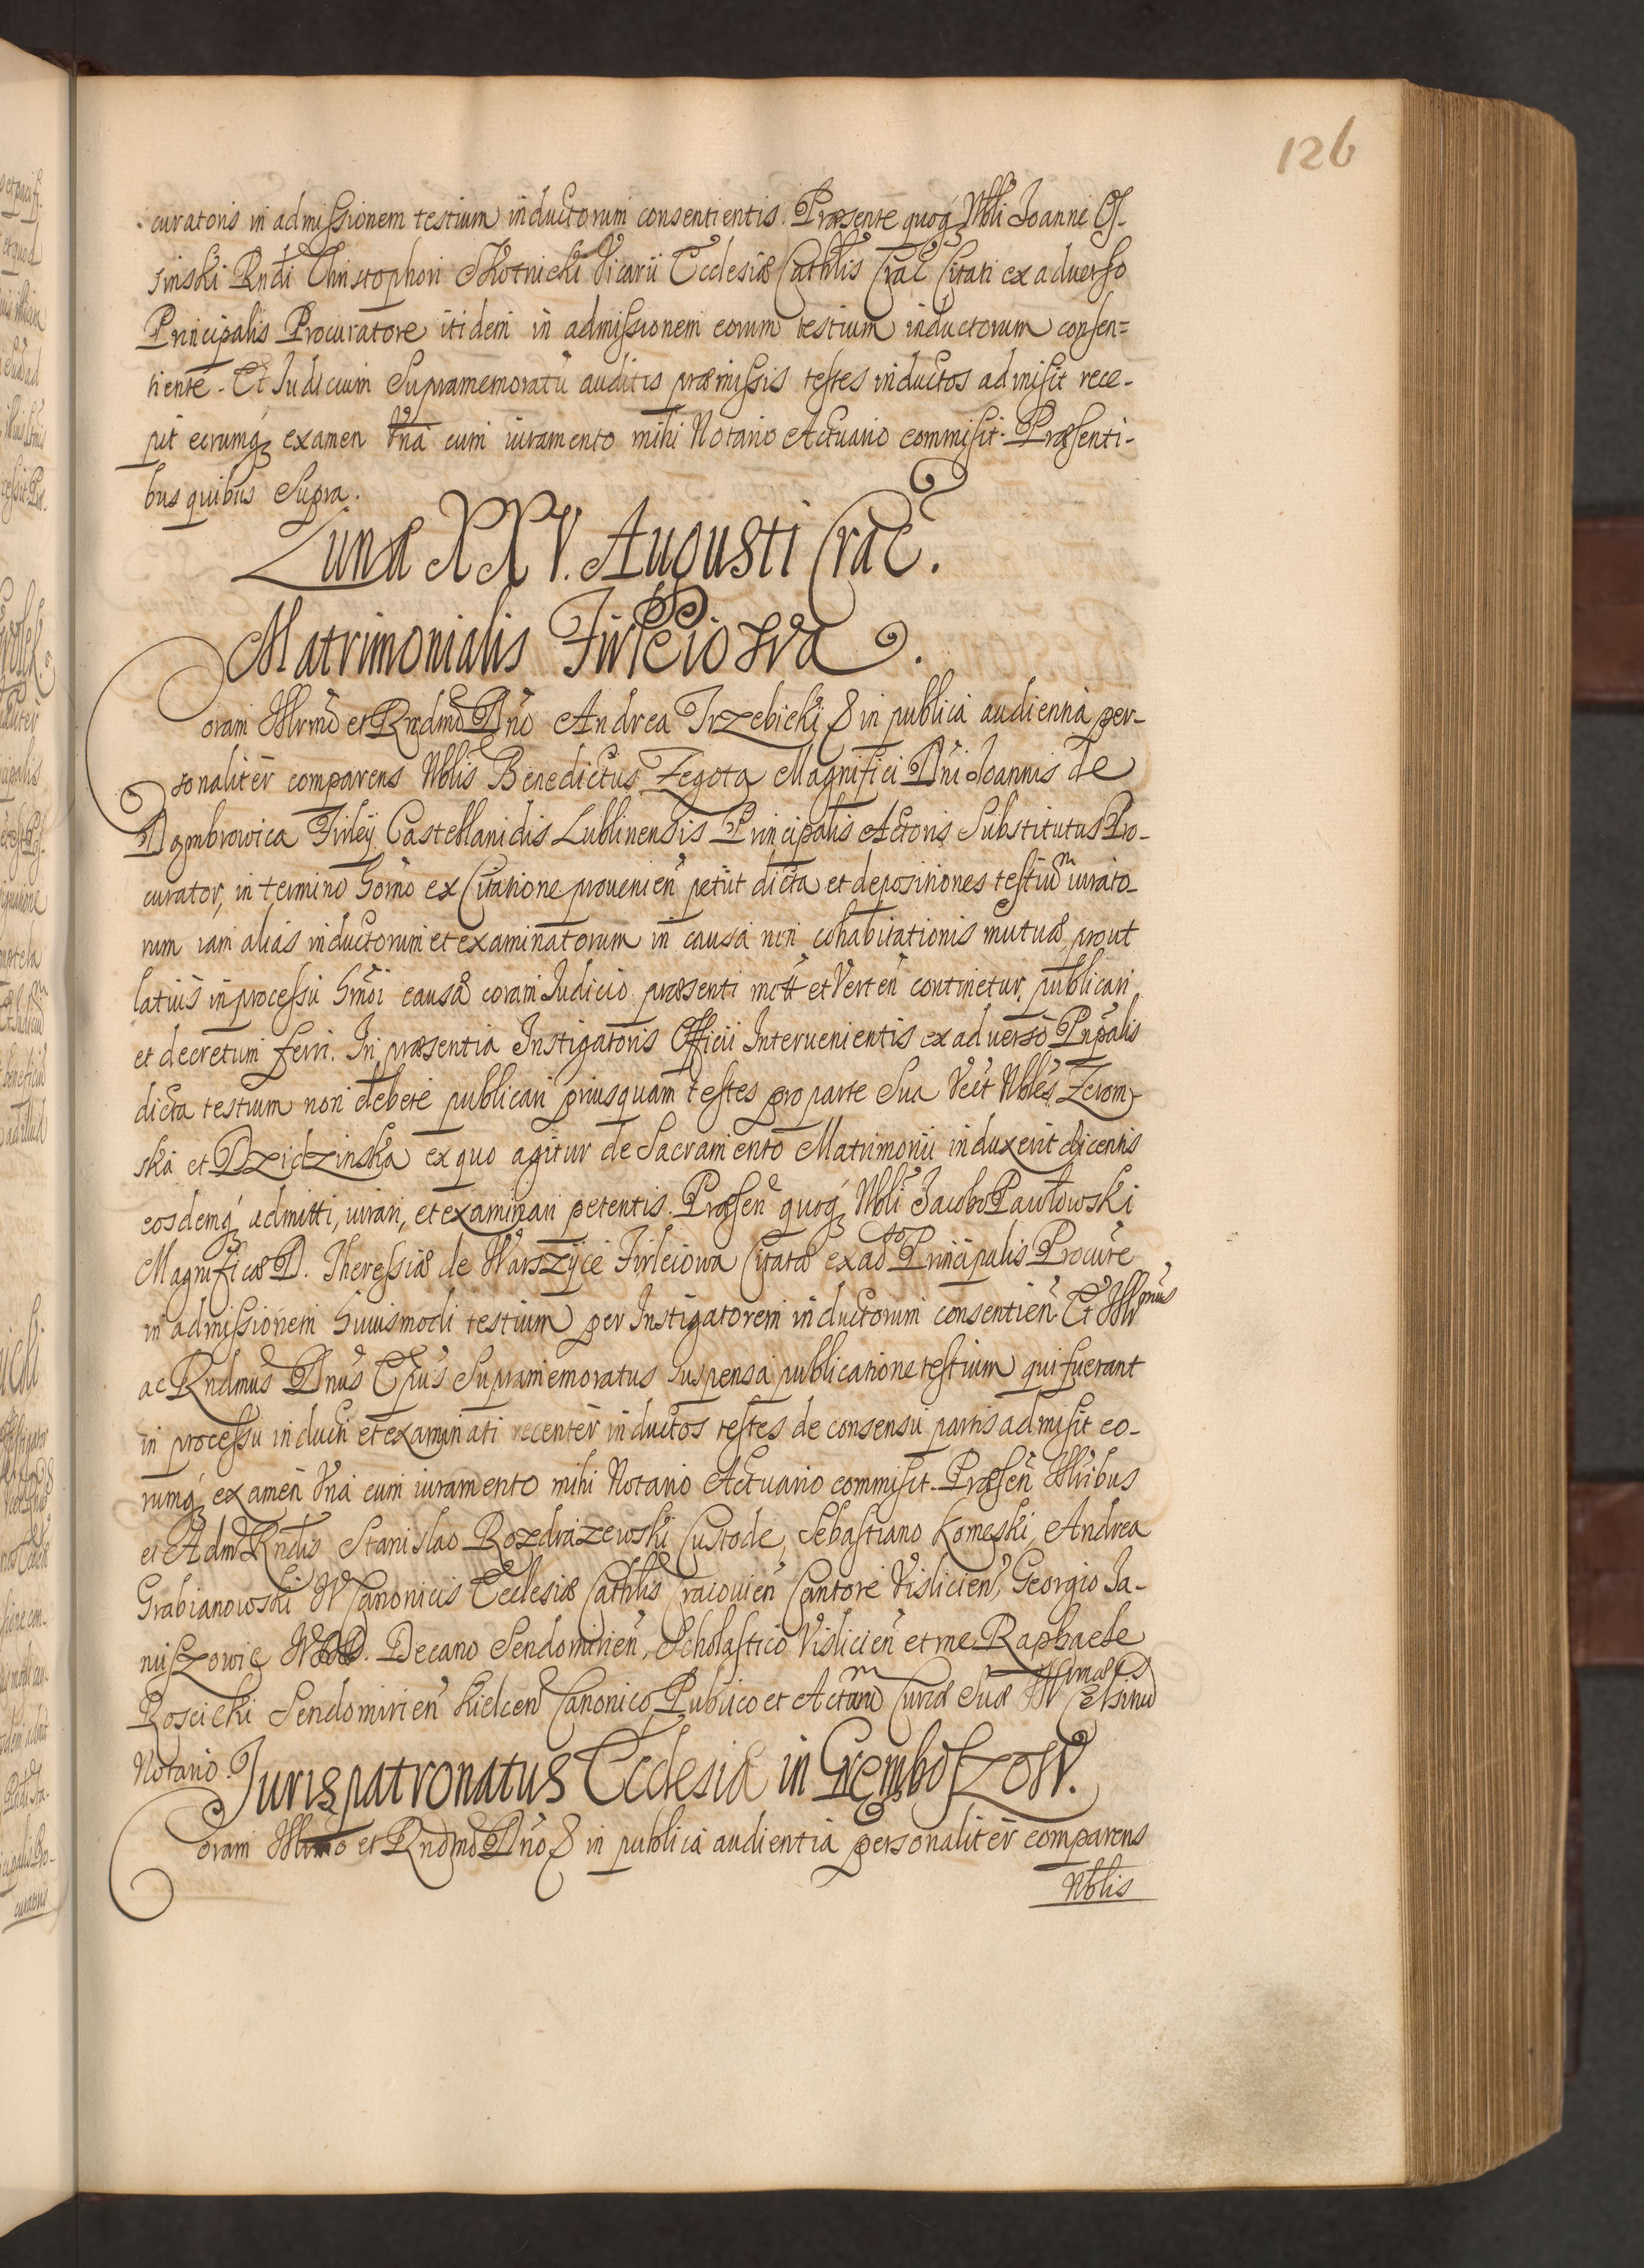 126
curatoris in admissionem testium inductorum consentientis. Præsente quoq́ Nbli Joanne Os-
sinski Rndi Christophori Skotnicki Vicarii Ecclesiæ Cathlis Crac̄ Citati ex aduerso
Principalis Procuratore itidem in admissionem eorum testium inductorum consen=
tiente. Et Judicium Supramemoratū auditis præmissis testes inductos admisit rece-
pit eorumq́ examen Vna cum iuramento mihi Notario Actuario commisit. Præsenti-
bus quibus Supra.
Lunæ XXV. Augusti Crac̄.
Matrimonialis Firleiowa.
Coram Illrmo et Rndmo Dño Andrea Trzebicki & in publica audientia per-
sonaliter comparens Nblis Benedictus Zegota Magnifici Dñi Joannis de
Dąmbrowica Firleÿ Castellanidis Lublinensis Principalis Actoris Substitutus Pro-
curator, in termino horno ex Citatione prouenień petiit dicta et depositiones testium iurato-
rum iam alias inductorum et examinatorum in causa non cohabitationis mutuæ prout
latius in processu hmoi causæ coram Judicio præsenti mott et Verteń continetur, publicari
et decretum ferri. In præsentia Instigatoris Officii Interuenientis ex aduerso Prīpalis
dicta testium non debere publicari priusquam testes pro parte Sua Vcit Nbles Zerom-
ska et Dzidzinska ex quo agitur de Sacramento Matrimonii induxerit dicentis
eosdemq́ admitti, iurari, et examinari petentis. Præseń quoq́ Nbli Jacobo Pawłowski
Magnificæ D. Theressiæ de Warszÿce Firleiowa Citatæ ex ad°so Principalis Procūre
in admissionem huiusmodi testium per Instigatorem inductorum consentień Et Illrmus
ac Rndmus Dñus Epūs Supramemoratus suspensa publicatione testium qui fuerant
in processu inducti et examinati recenter inductos testes de consensu partis admisit eo-
rumq́ examen Vna cum iuramento mihi Notario Actuario commisit. Præseń Illribus
et Adm Rndis Stanislao Rozdrazewski Custode, Sebastiano Komęski, Andrea
Grabianowski W Canonicis Ecclesiæ Cathlis Cracouień Cantore Vislicień, Georgio Ja-
niszowic WDD. Decano Sendomirień, Scholastico Vislicień et me Raphaele
Roscicki Sendomirień Kielceń Canonico Publico et Actōrum Curiæ Suæ Illrmæ Cels
Notario.
Jurispatronatus Ecclesiæ in Gręmboszow.
Coram Illrmo et Rndmo Dño & in publica audientia personaliter comparens
Nblis